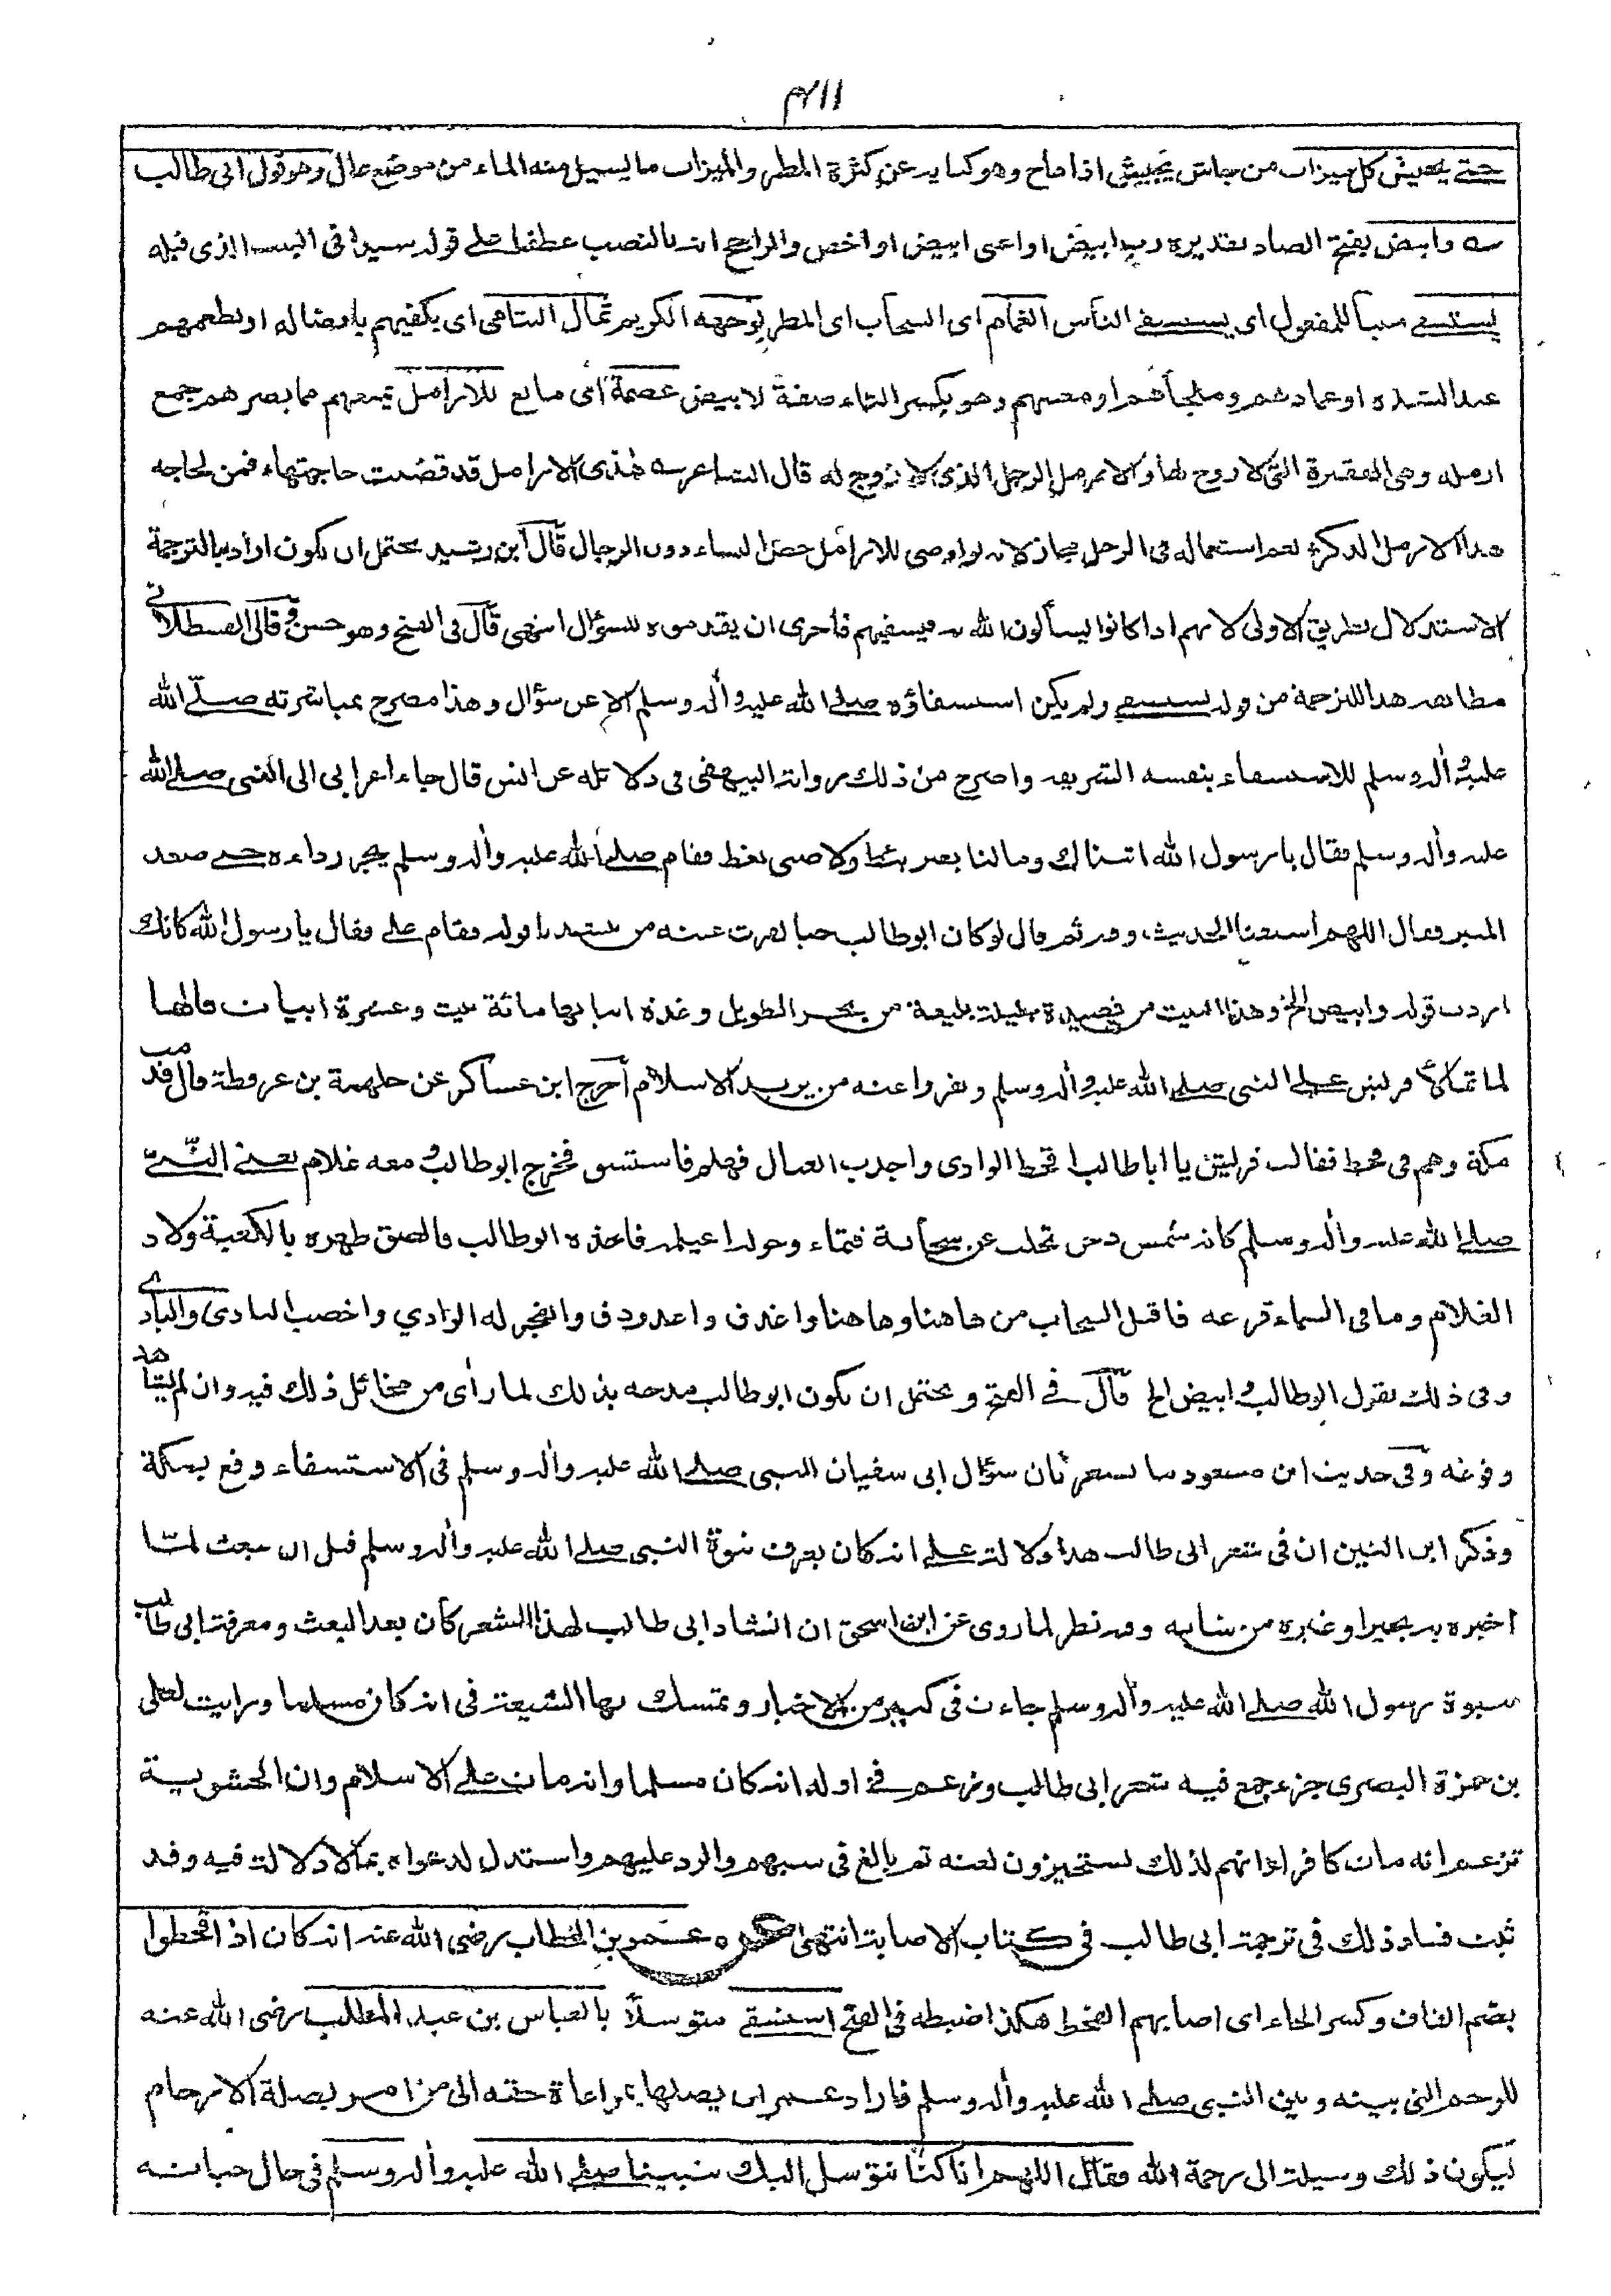 ٣١١
حتى يجيش كل ميزاب من جاش يجيش اذا هاج وهو كناية عن كثرة المطر والميزاب ما يسيل منه الماء من موضع عال وهو قول ابى طالب
سه وابيض بفتح الضاد تقديره رب ابيض او اعنى ابيض او اخص والراجح انه بالنصب عطفا على قوله سيدا فى البيت الذى قبله
يستسقى مبنيا للمفعول اى يستسقى الناس الغمام اى السحاب اى المطر بوجهه الكريم ثمال اليتامى اى يكفيهم بافضاله او يطعمهم
عند الشدة او عمادهم وملجأهم او مغيثهم وهو بكسر الثاء صفة لابيض عصمة اى مانع للارامل يمنعهم مما يضرهم جمع
ارملة وهى الفقيرة التى لا زوج لها والارمل الرجل الذى لا زوج له قال الشاعر سه هذى الارامل قد قضيت حاجتها، فمن لحاجة
هذا الارمل الذكر، نعم استعماله فى الرجل مجاز لانه لو اوصى للارامل خص النساء دون الرجال قال ابن رشيد يحتمل ان يكون اراد بالترجمة
الاستدلال بطريق الاولى لانهم اذا كانوا يسألون الله به فيسقيهم فاحرى ان يقدموه للسؤال انتهى قال فى الفتح وهو حسن وقال القسطلانى
مطابقة هذا للترجمة من قوله يستسقى ولم يكن استسقاؤه صلى الله عليه وآله وسلم الا عن سؤال وهذا مصرح بمباشرته صلى الله
عليه وآله وسلم للاستسقاء بنفسه الشريفة واصرح من ذلك رواية البيهقى فى دلائله عن انس قال جاء اعرابى الى النبى صلى الله
عليه وآله وسلم فقال يا رسول الله اتيناك وما لنا بعير يئط ولا صبى يغط فقام صلى الله عليه وآله وسلم يجر رداءه حتى صعد
المنبر فقال اللهم اسقنا الحديث، وفيه ثم قال لو كان ابو طالب حيا لقرت عينه من ينشدنا قوله فقام على فقال يا رسول الله كانك
اردت قوله وابيض الخ وهذا البيت من قصيدة جليلة بليغة من بحر الطويل وعدة ابياتها مائة بيت وعشرة ابيات قالها
لما تمالأ قريش على النبى صلى الله عليه وآله وسلم ونفروا عنه من يريد الاسلام اخرج ابن عساكر عن جلهمة بن عرفطة قال قدمت
مكة وهم فى قحط فقالت قريش يا ابا طالب اقحط الوادى واجدب العيال فهلم فاستسق فخرج ابو طالب ومعه غلام يعنى النبى
صلى الله عليه وآله وسلم كانه شمس دجن تجلت عن سحابة قتماء وحوله اغيلمة فاخذه ابو طالب فالصق ظهره بالكعبة ولاذ
الغلام وما فى السماء قزعة فاقبل السحاب من هاهنا وهاهنا واغدق واغدودق وانفجر له الوادي واخصب النادى والبادى
وفى ذلك يقول ابو طالب وابيض الخ قال فى الفتح ويحتمل ان يكون ابو طالب مدحه بذلك لما رأى من مخائل ذلك فيه وان لم يشاهد
وقوعه وفى حديث ابن مسعود ما يشعر بان سؤال ابى سفيان للنبى صلى الله عليه وآله وسلم فى الاستسقاء وقع بمكة
وذكر ابن التين ان فى شعر ابى طالب هذا دلالة على انه كان يعرف نبوة النبى صلى الله عليه وآله وسلم قبل ان يبعث لما
اخبره به بحيرا وغيره من شانه وفيه نظر لما روى عن ابن اسحق ان انشاد ابى طالب لهذا الشعر كان بعد البعث ومعرفة ابى طالب
بنبوة رسول الله صلى الله عليه وآله وسلم جاءت فى كثير من الاخبار وتمسك بها الشيعة فى انه كان مسلما ورايت لعلى
بن حمزة البصرى جزء جمع فيه شعر ابى طالب وزعم فى اوله انه كان مسلما وانه مات على الاسلام وان الحشوية
تزعم انه مات كافرا وانهم لذلك يستجيزون لعنه ثم بالغ فى سبهم والرد عليهم واستدل لدعواه بما لا دلالة فيه وقد
ثبت فساد ذلك فى ترجمة ابى طالب فى كتاب الاصابة انتهى عمر بن الخطاب رضى الله عنه انه كان اذا قحطوا
بضم القاف وكسر الحاء اى اصابهم القحط هكذا ضبطه فى الفتح استسقى متوسلا بالعباس بن عبد المطلب رضى الله عنه
للرحم التى بينه وبين النبى صلى الله عليه وآله وسلم فاراد عمر ان يصلها بمراعاة حقه الى من امر بصلة الارحام
ليكون ذلك وسيلة الى رحمة الله فقال اللهم انا كنا نتوسل اليك بنبينا صلى الله عليه وآله وسلم فى حال حياته